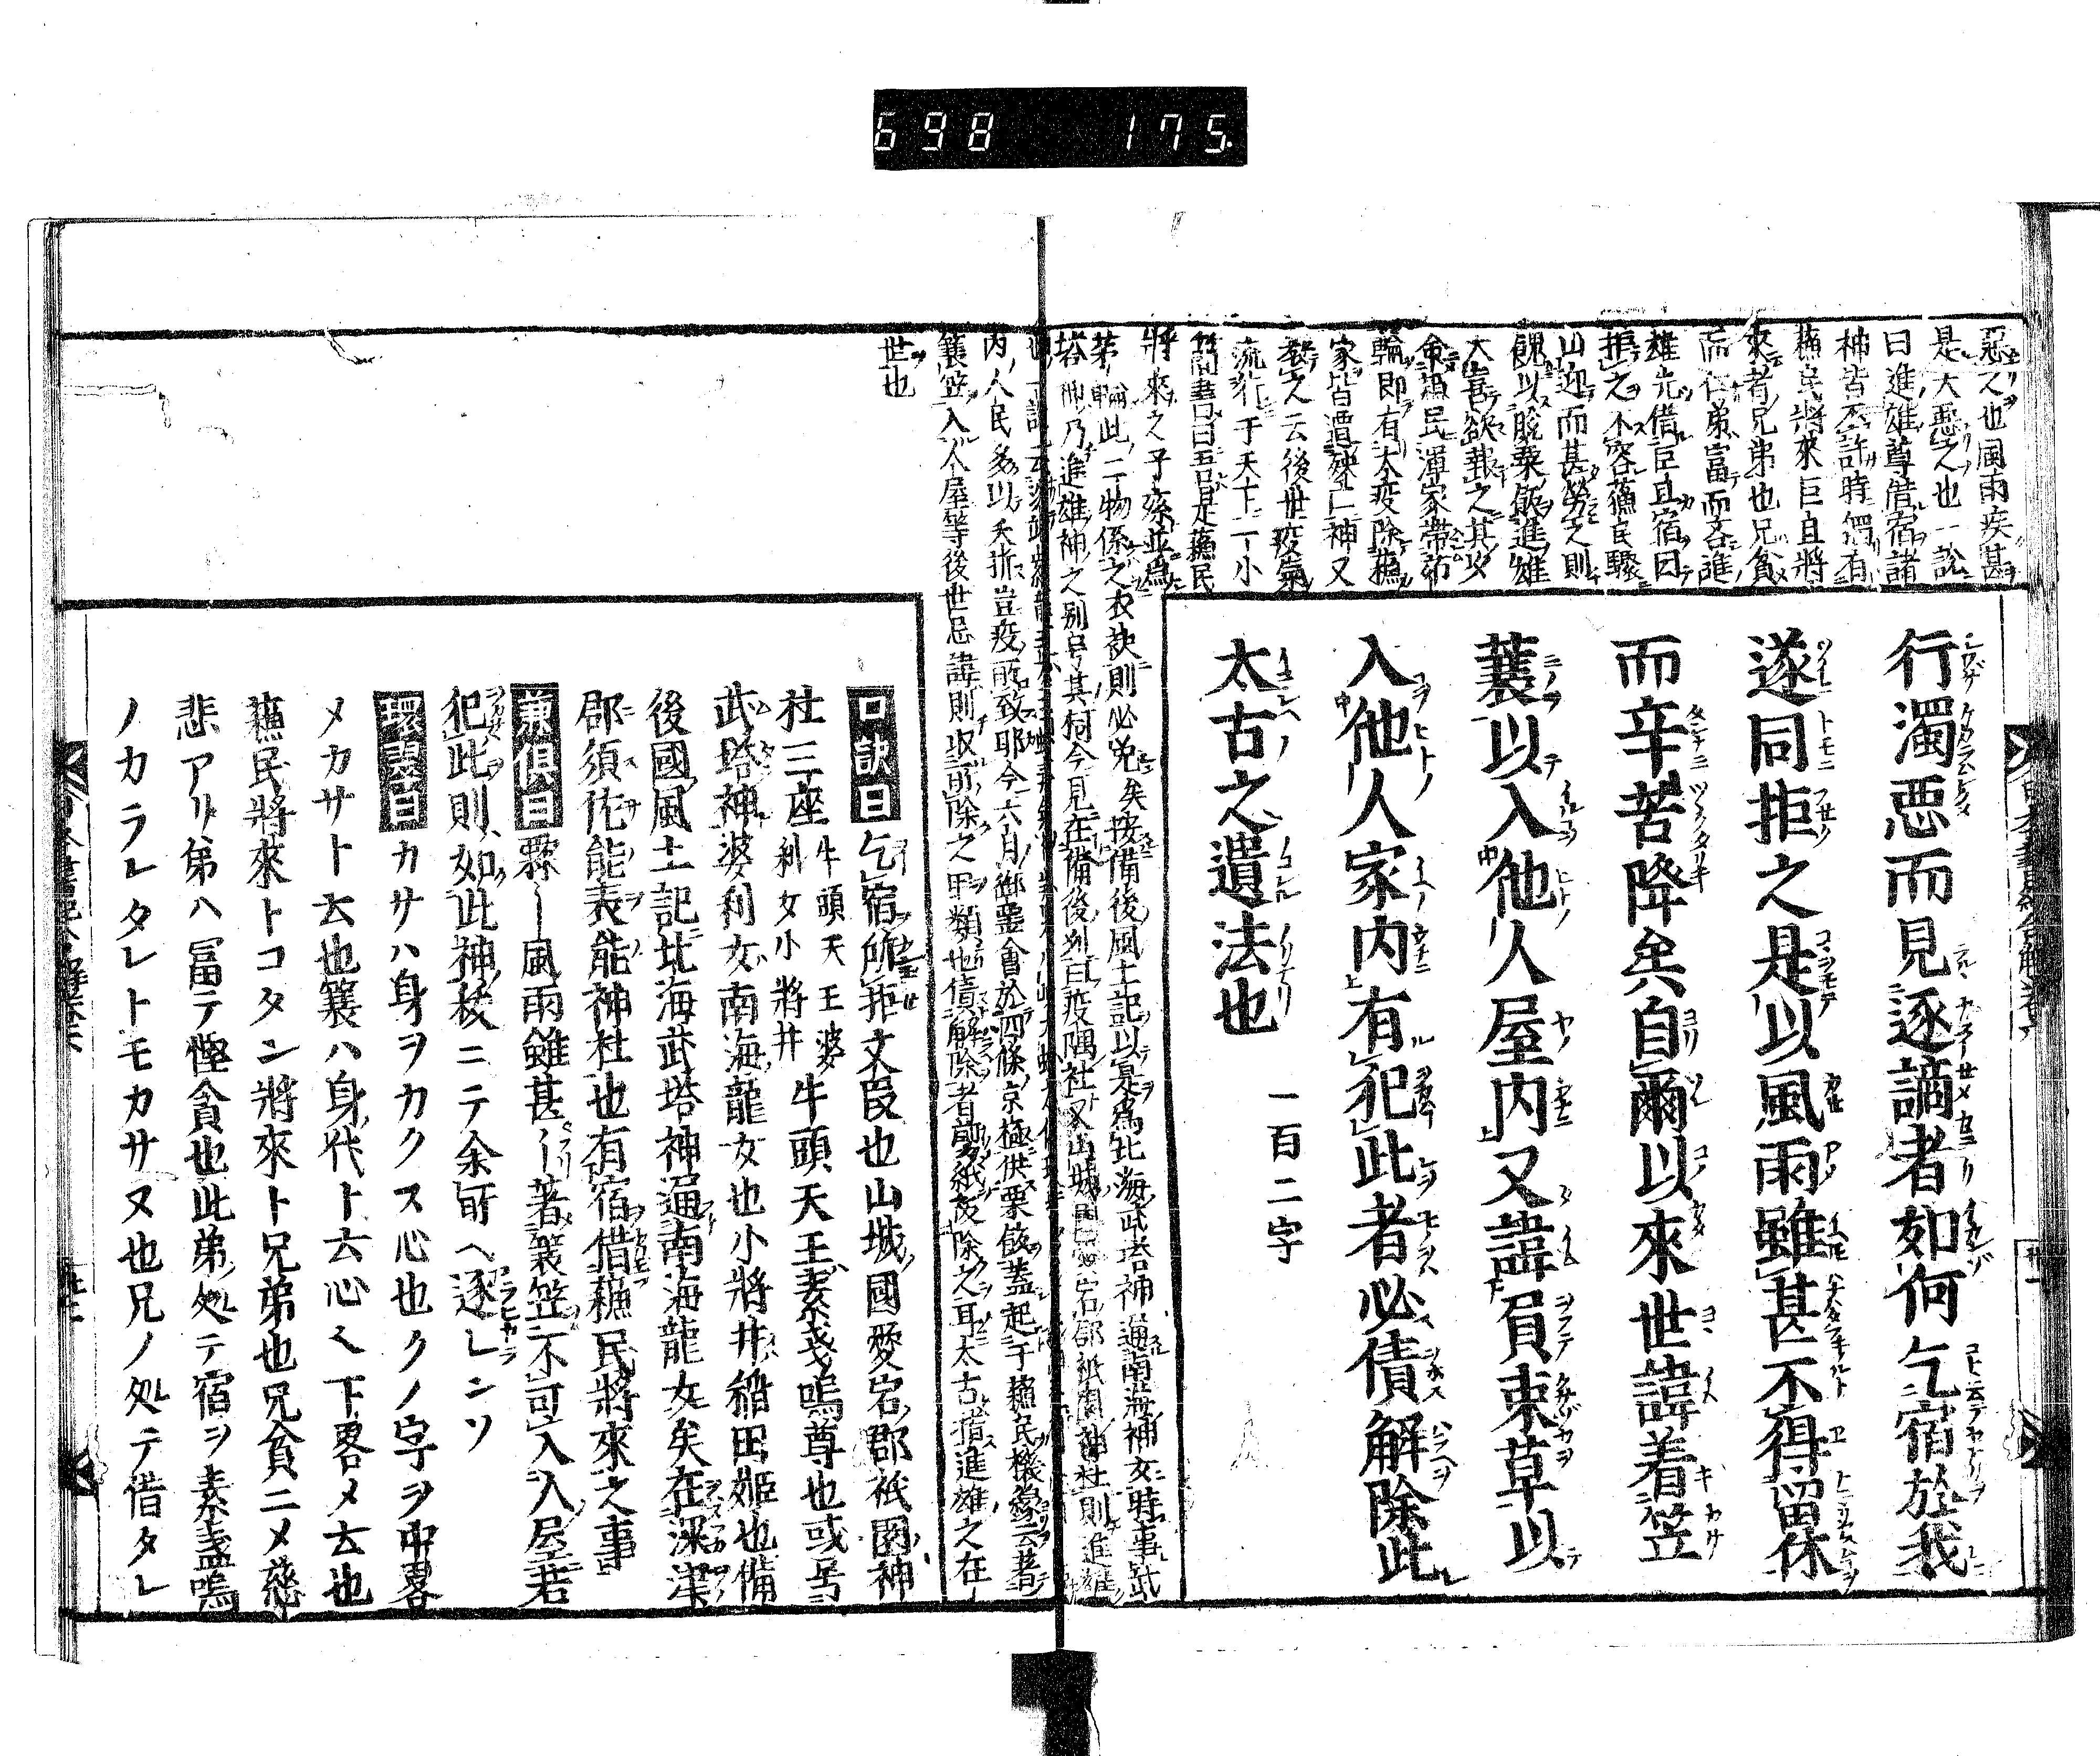 698 175
惡之也風雨疾甚
是大惡之也一説
曰進雄尊借宿諸
神皆不許時偶有
蘓民將來巨旦將
來者兄弟也兄貧
而仁弟富而吝進
雄先借巨旦宿曰
拒之不容蘓民驟
山迎而甚勞之則
餽以脱粟飯進雄
大喜欲報之其後
命蘓民渾家帶茆
輪即有大疫除蘓
家皆遭殃亡神又
教之云後世疫氣
流行于天下小
簡書曰吾是蘓民
將來之子孫並爲
茅輪此二物係之衣袂則必免矣按備後風土記以是爲北海武塔神通南海神女時事武
塔即乃進雄神之別号其祠今見在備後
内人民多以夭折豈疫所致耶今六月御霊會於四條京極供栗飯蓋起于蘓民機縁云者
簑笠入人屋等後世忌諱則収前除之甲類也債解除者前紙後除之耳太古指進雄之在
世也
行濁惡而見逐謫者如何乞宿於我
遂同拒之是以風雨雖甚不得留休
而辛苦降矣自爾以來世諱着笠
蓑以入他人屋内又諱負束草以
入他人家内有犯此者必債解除此
太古之遺法也 一百二字
口訣曰乞宿所拒文叚也山城國愛宕郡祇園神
社三座牛頭天王婆利女小將井牛頭天王素戔嗚尊也或号
武塔神婆利女南海龍女也小將井稲田姫也備
後國風土記北海武塔神通南海龍女矣在深津
郡須佐能表能神社也有宿借蘓民將來之事
兼倶曰黥〡風雨雖甚〡著簑笠不可入人屋若
犯此則如此神被ニテ余所ヘ逐レンソ
環翠曰カサハ身ヲカクス心也クノ字ヲ中畧
メカサト云也簑ハ身代ト云心ヘ下畧メ云也
蘓民將來トコタン將來ト兄弟也兄貧ニメ慈
悲アリ弟ハ冨テ慳貪也此弟処テ宿ヲ素盞嗚
ノカラレタレトモカサヌ也兄ノ処テ借タレ